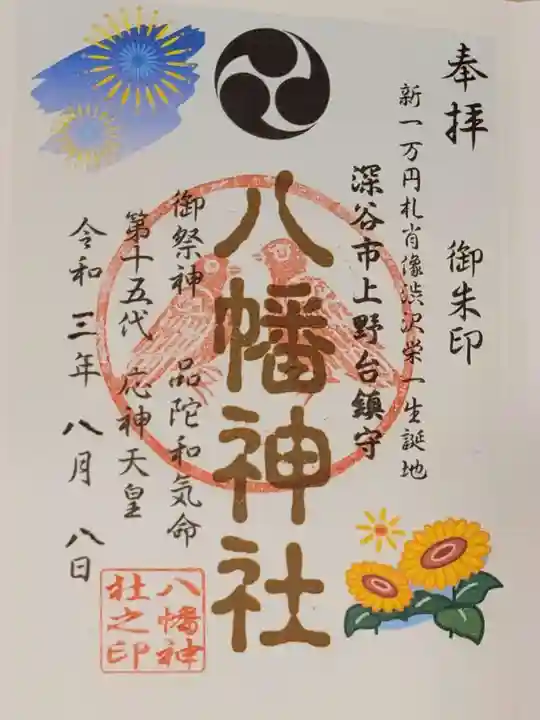 奉拝 御朱印
新一万円札肖像渋沢栄一生誕地
深谷市上野台鎮守
八幡神社
御祭神 品陀和気命
第十五代 応神天皇
令和三年八月八日
八幡神
社之印